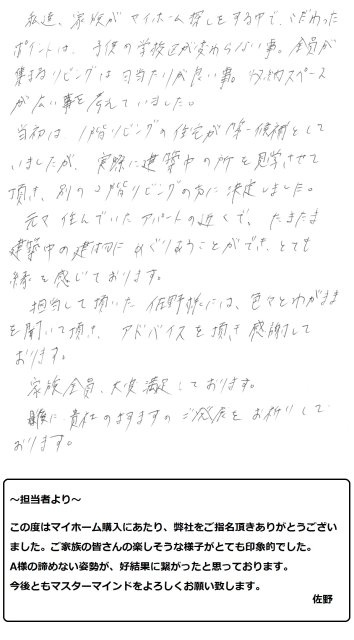 私達、家族がマイホーム探しをする中で、こだわった
ポイントは、子供の学校区が変わらない事。全員が
集まるリビングは日当たりが良い事。収納スペース
が広い事を考えていました。
当初は、1階リビングの住宅が第一候補として
いましたが、実際に建築中の所を見学させて
頂き、別の2階リビングの方に決定しました。
元々住んでいたアパートの近くで、たまたま
建築中の建物にめぐりあうことができ、とても
縁を感じております。
担当して頂いた佐野様には、色々とわがまま
を聞いて頂き、アドバイスを頂き感謝して
おります。
家族全員、大変満足しております。
貴社のますますのご発展をお祈りして
おります。
～担当者より～
この度はマイホーム購入にあたり、弊社をご指名頂きありがとうござい
ました。ご家族の皆さんの楽しそうな様子がとても印象的でした。
A様の諦めない姿勢が、好結果に繋がったと思っております。
今後ともマスターマインドをよろしくお願い致します。
佐野